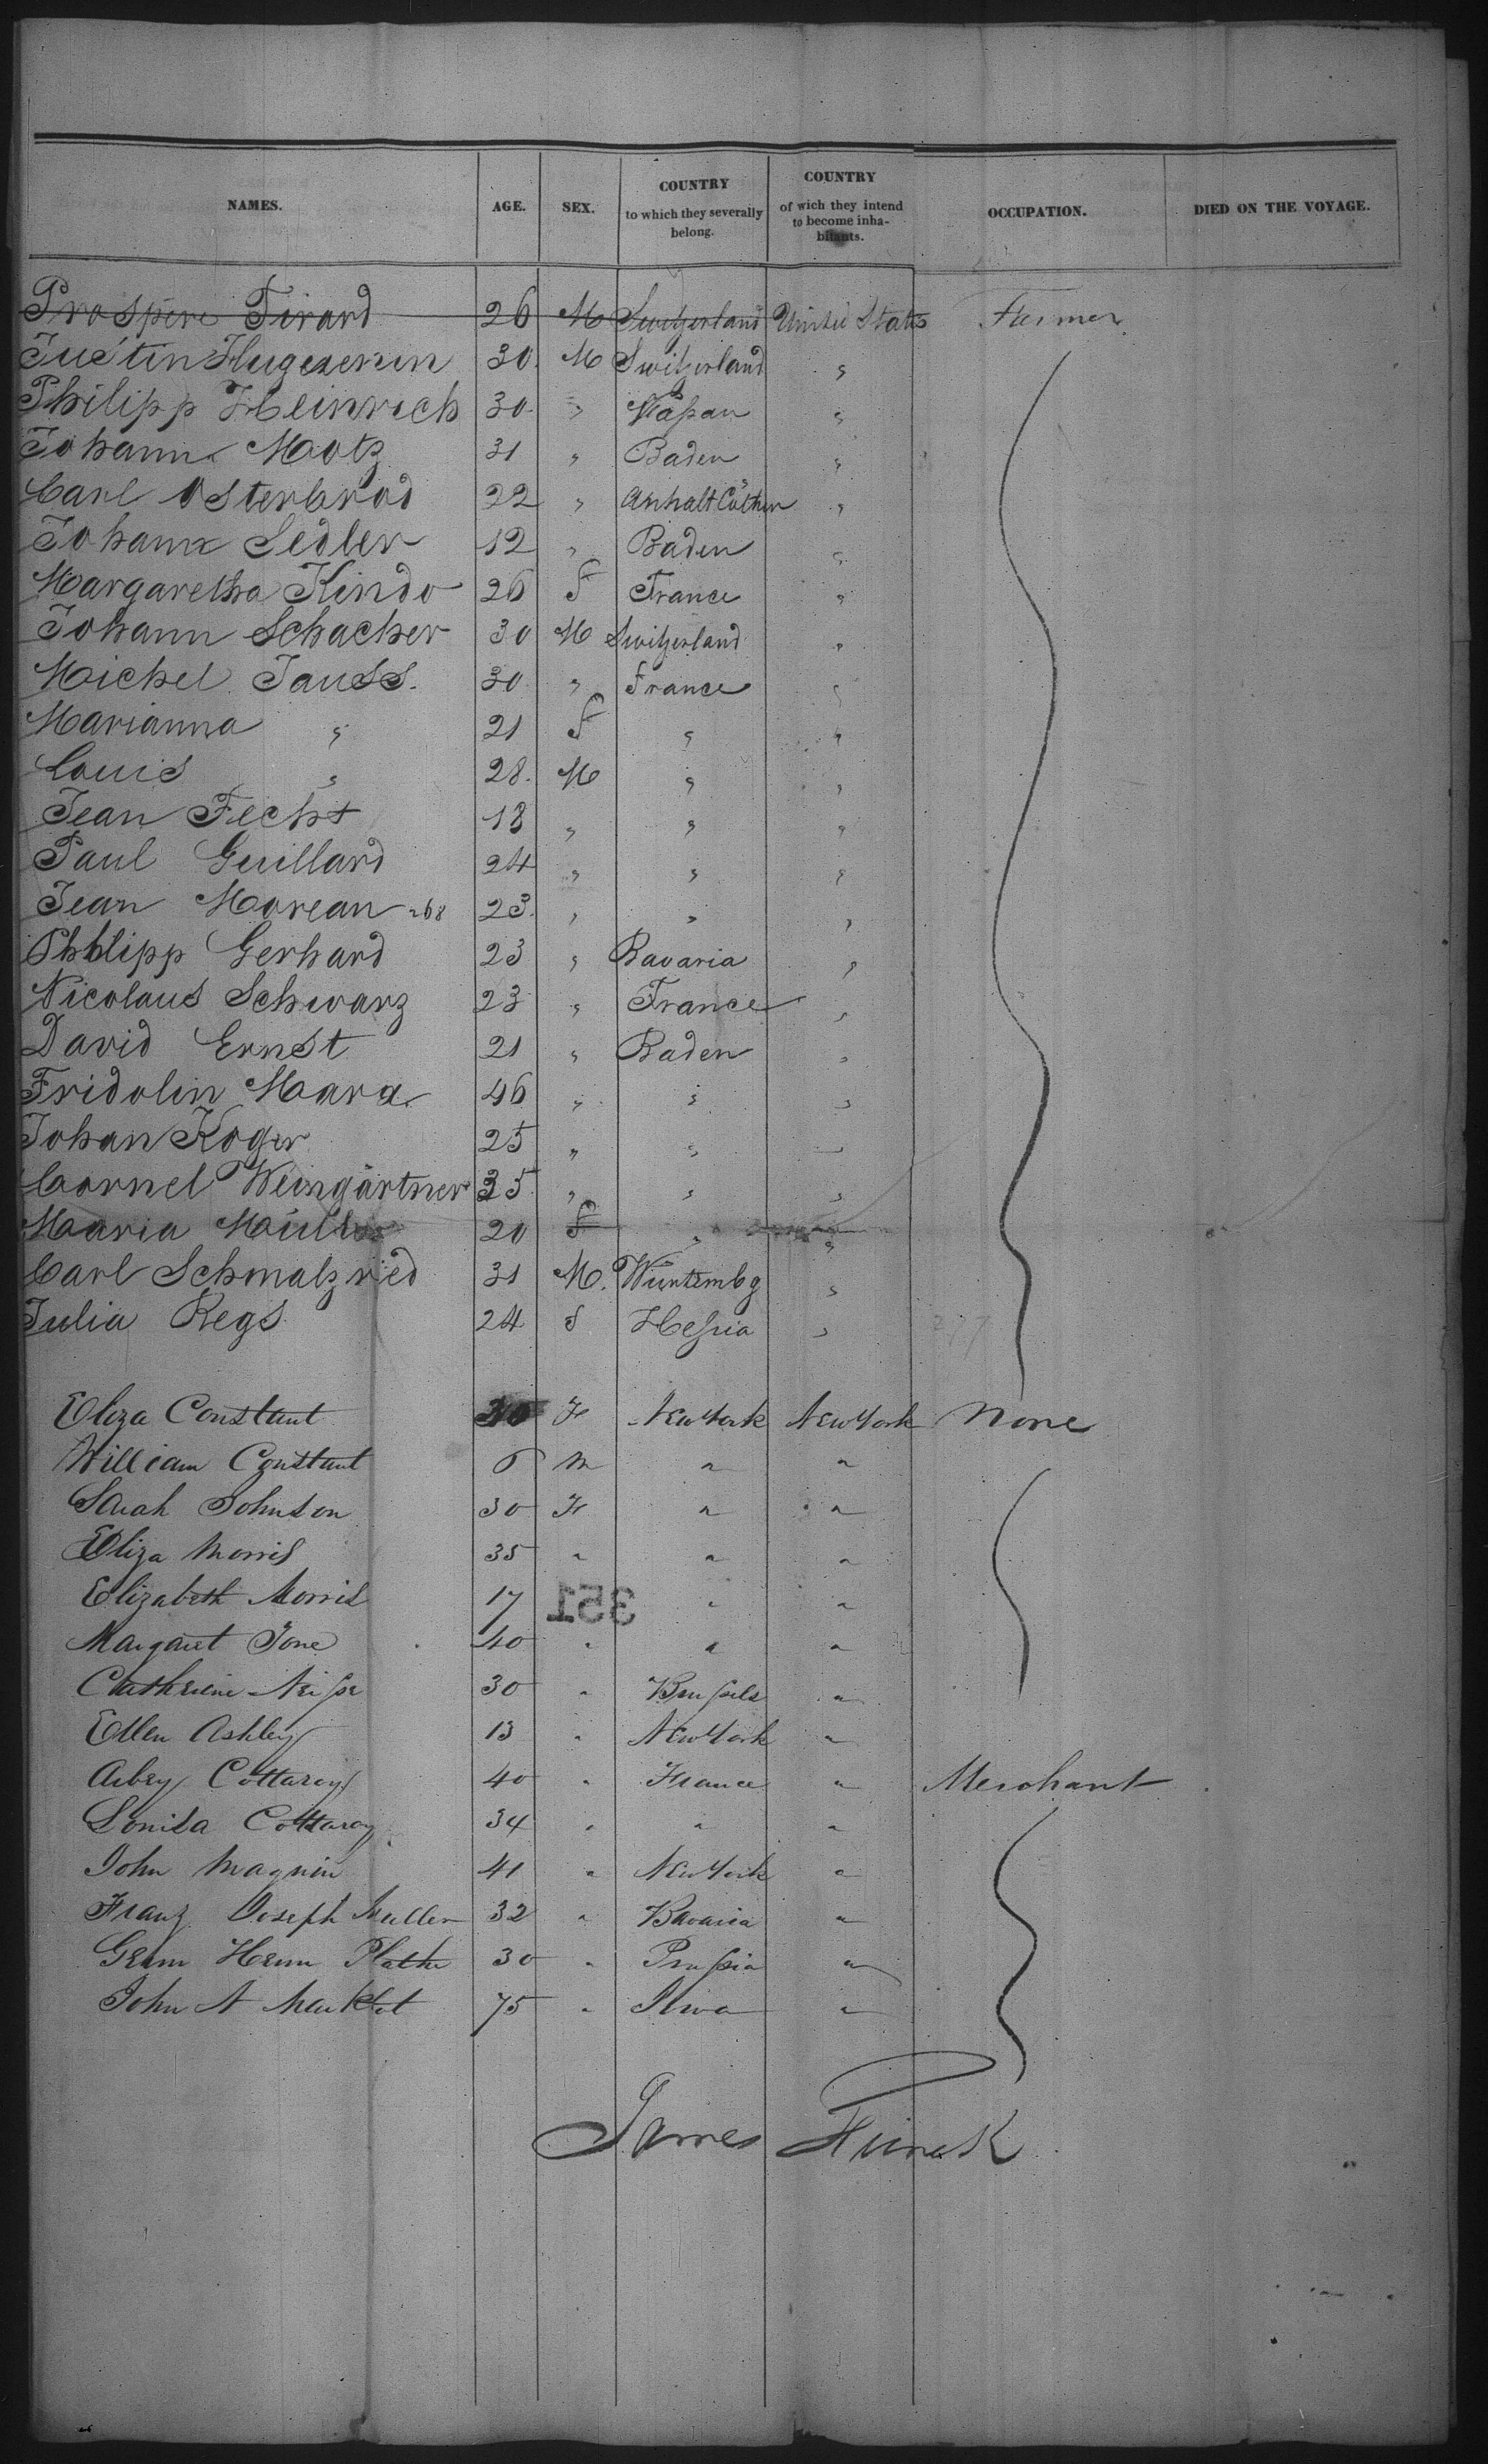 NAMES. AGE. SEX. COUNTRY to which they severally belong. COUNTRY of wich they intend to become inhabitants. OCCUPATION. DIED ON THE VOYAGE.
Prospere Girard 26 M Switzerland United States Farmer
Justin Hugenenin 30. M Switzerland "
Philipp Heinrich 30 " Naßau "
Johann Motz 31 " Baden "
Carl Osterbrod 22 " Anhalt Cöthen "
Johann Sedler 12 " Baden "
Margaretha Kindo 26 F France "
Johann Schacher 30 M Switzerland "
Michel Jauss. 30 " France "
Marianna " 21 F " "
Louis " 28. M " "
Jean Fecht 18 " " "
Paul Guillard 24 " " "
Jean Morean 268 23. " " "
Philipp Gerhard 23 " Bavaria "
Nicolaus Schwarz 23 " France "
David Ernst 21 " Baden "
Fridolin Mara 46 " " "
Johan Koger 25 " " "
Cornel Weingärtner 35 " " "
Maria Müller 20 F " "
Carl Schmalzried 31 M. Würtembg "
Julia Regs 24 F Heßia "
Eliza Constant F New York New York None
William Constant 6 M " "
Sarah Johnson 30 F " "
Eliza Morris 35 " " "
Elizabeth Morris 17 " "
351
Margaret Jone 40 " " "
Catherine Neiße 30 " Brußels "
Ellen Ashley 13 " New York "
Cottaray 40 " France " Merchant
Cottaray 34 " " "
John Magnin 41 " New York "
Franz Joseph Muller 32 " Bavaria "
Plathe 30 " Prußia "
John A 75 " "
James Funck